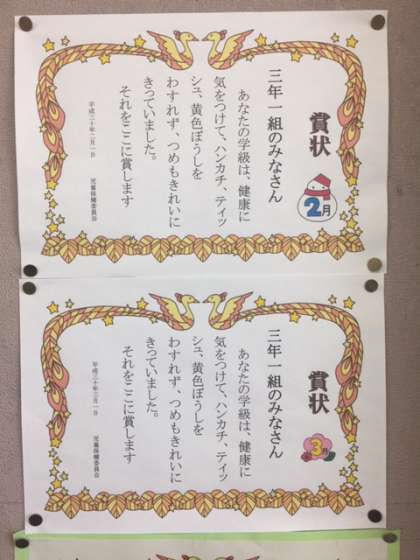 賞状
2月
三年一組のみなさん
あなたの学級は、健康に
気をつけて、ハンカチ、ティッ
シュ、黄色ぼうしを
わすれず、つめもきれいに
きっていました。
それをここに賞します
平成三十年二月一日
児童保健委員会
賞状
3月
三年一組のみなさん
あなたの学級は、健康に
気をつけて、ハンカチ、ティッ
シュ、黄色ぼうしを
わすれず、つめもきれいに
きっていました。
それをここに賞します
平成三十年三月一日
児童保健委員会